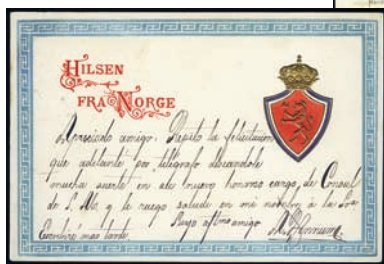 HILSEN
FRA NORGE
Apreciado amigo: Repito la felicitacion
que adelante por telégrafo deseandole
mucha suerte en ese nuevo honroso cargo, de Consul
de S. M. y le ruego salude en mi nombre a la Sra
Suyo affmo amigo
Escribiré mas tarde